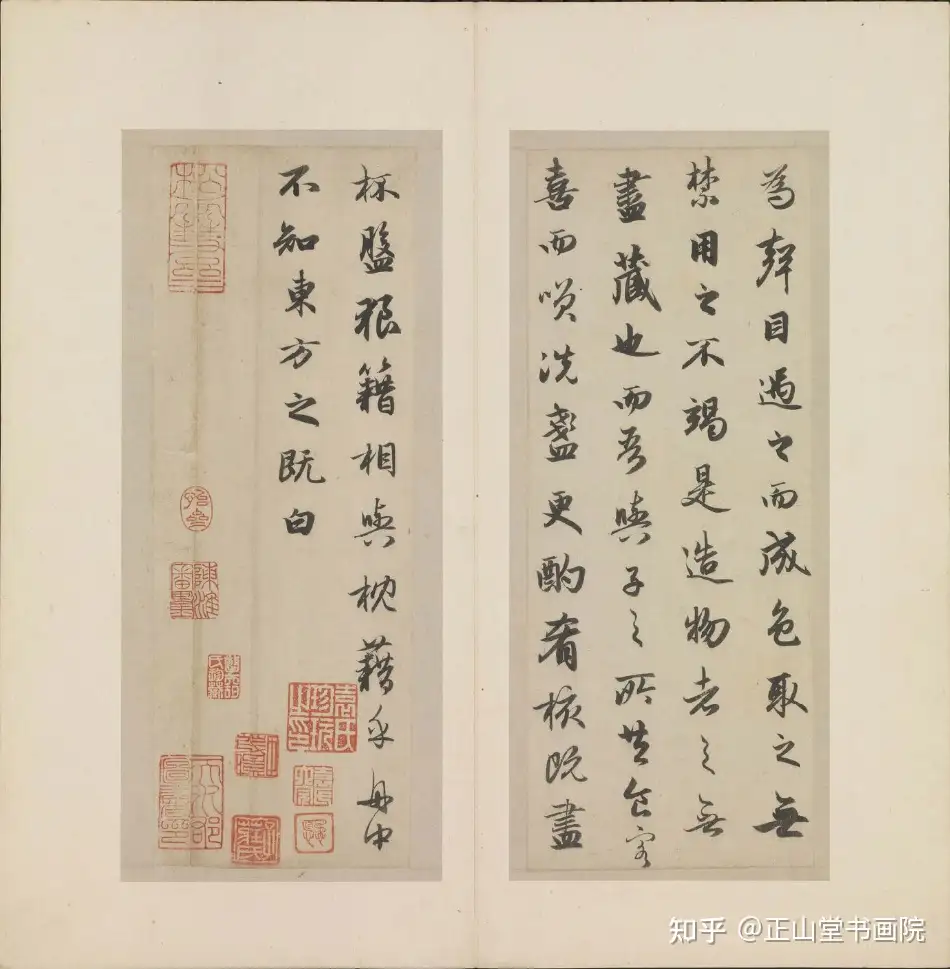 為聲目遇之而成色取之無
禁用之不竭是造物者之無
盡藏也而吾與子之所共食客
喜而笑洗盞更酌肴核既盡
杯盤狼籍相與枕藉乎舟中
不知東方之既白
知乎 @正山堂书画院